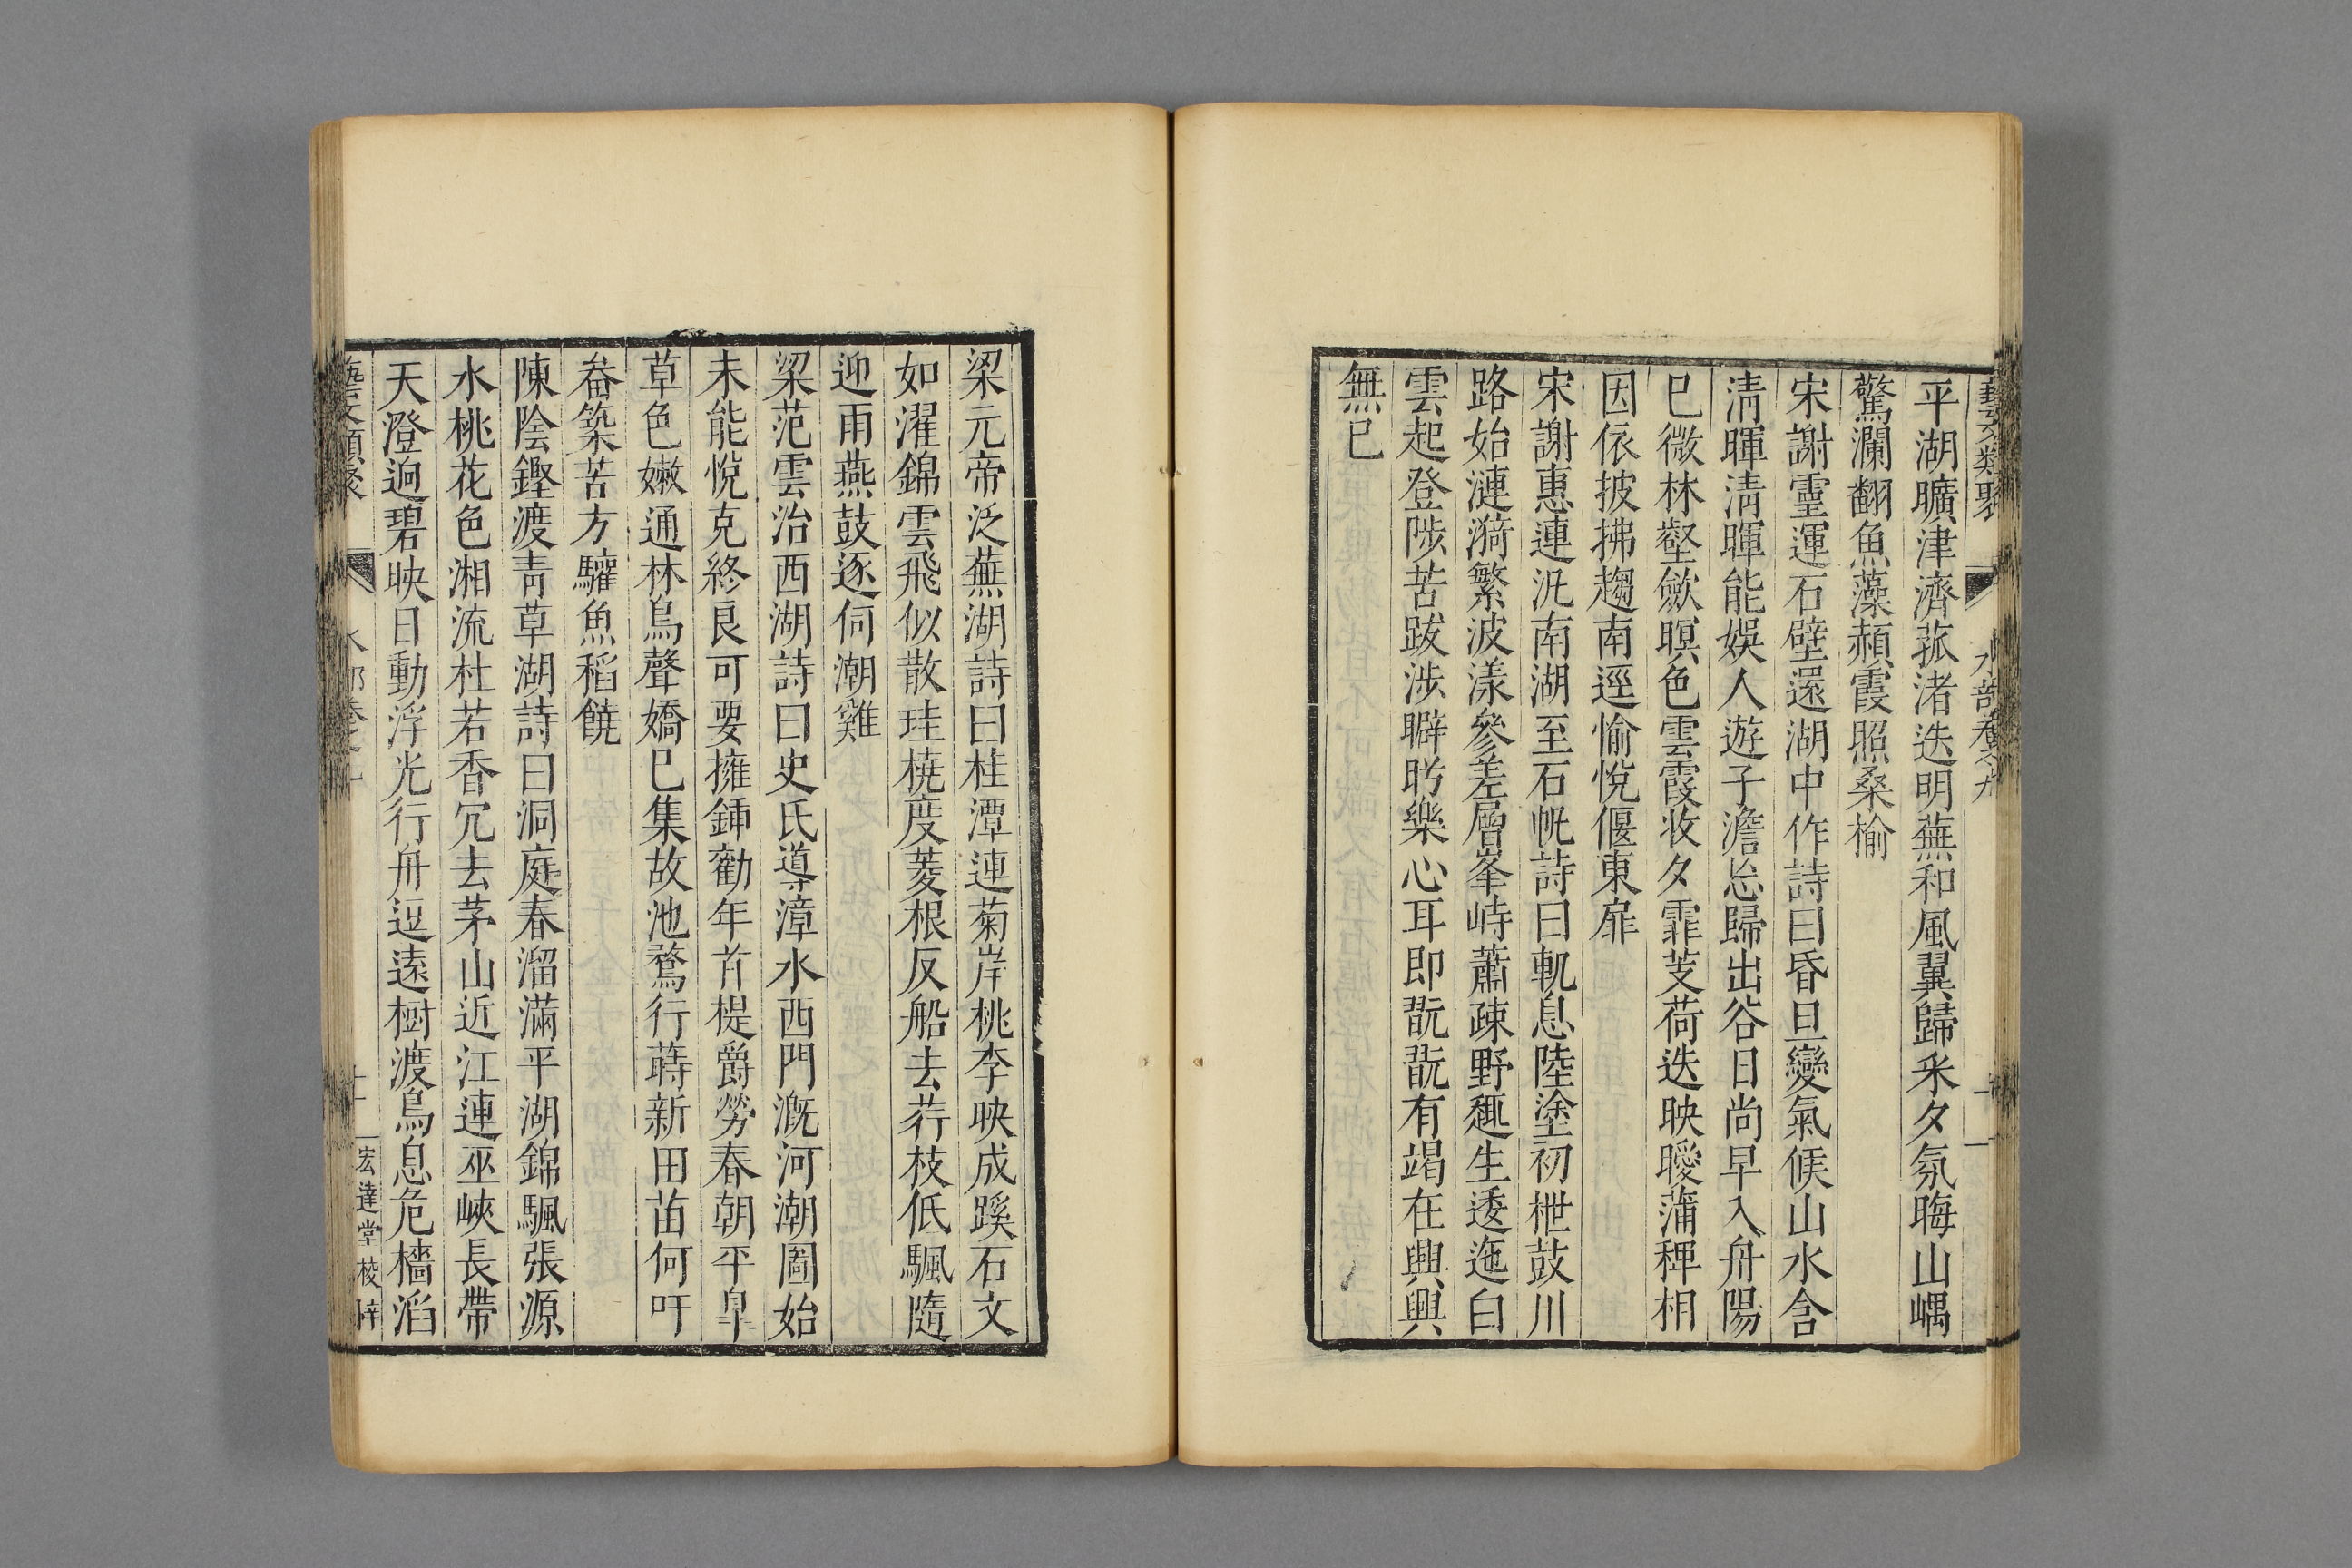 藝文類聚 水部卷之九
平湖曠津濟菰渚迭明蕪和風翼歸釆夕氛晦山嵎
驚瀾翻魚藻赬霞照桑榆
宋謝霊運石壁還湖中作詩曰昏旦變氣候山水含
淸暉淸暉能娛人遊子澹忘歸出谷日尚早入舟陽
巳微林壑歛暝色雲霞收夕霏芰荷迭映曖蒲稗相
因依披拂趨南逕愉悅偃東扉
宋謝惠連汎南湖至石帆詩曰軌息陸塗初枻鼓川
路始漣漪繁波漾參差層峯峙蕭疎野趣生逶迤白
雲起登陟苦跋涉睥盻樂心耳即翫翫有竭在興興
無已
梁元帝泛蕪湖詩曰桂潭連菊岸桃李映成蹊石文
如濯錦雲飛似散珪橈度菱根反船去荇枝低颿隨
迎雨燕鼓逐伺潮雞
梁范雲治西湖詩曰史氏導漳水西門漑河潮圖始
未能悅克終良可要擁鍤勸年首提爵勞春朝平皐
草色嫩通林鳥聲嬌巳集故池鶩行蒔新田苗何吁
畚築苦方驩魚稻饒
陳陰鏗渡靑草湖詩曰洞庭春溜滿平湖錦颿張源
水桃花色湘流杜若香冗去茅山近江連巫峽長帶
天澄迥碧映日動浮光行舟逗遠樹渡鳥息危檣滔
藝文類聚 水部卷之 十一 宏達堂校梓